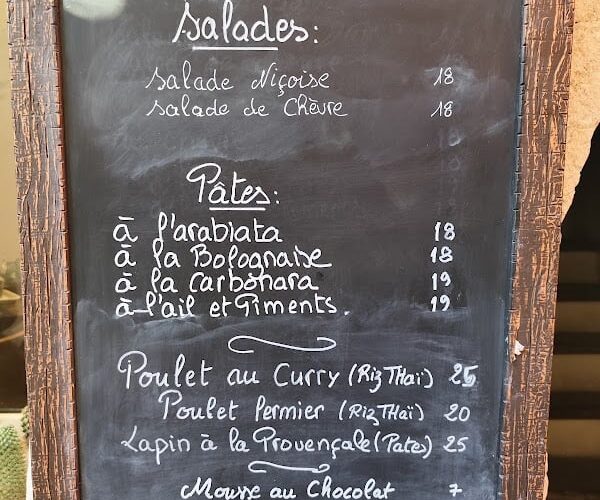 Salades:
salade Niçoise 18
salade de Chèvre 18
Pâtes:
à l'arabiata 18
à la Bolognaise 18
à la Carbonara 19
à l'ail et Piments. 19
Poulet au Curry (Riz THaï) 25
Poulet Fermier (Riz THaï) 20
Lapin à la Provençale (Pates) 25
Mousse au Chocolat 7